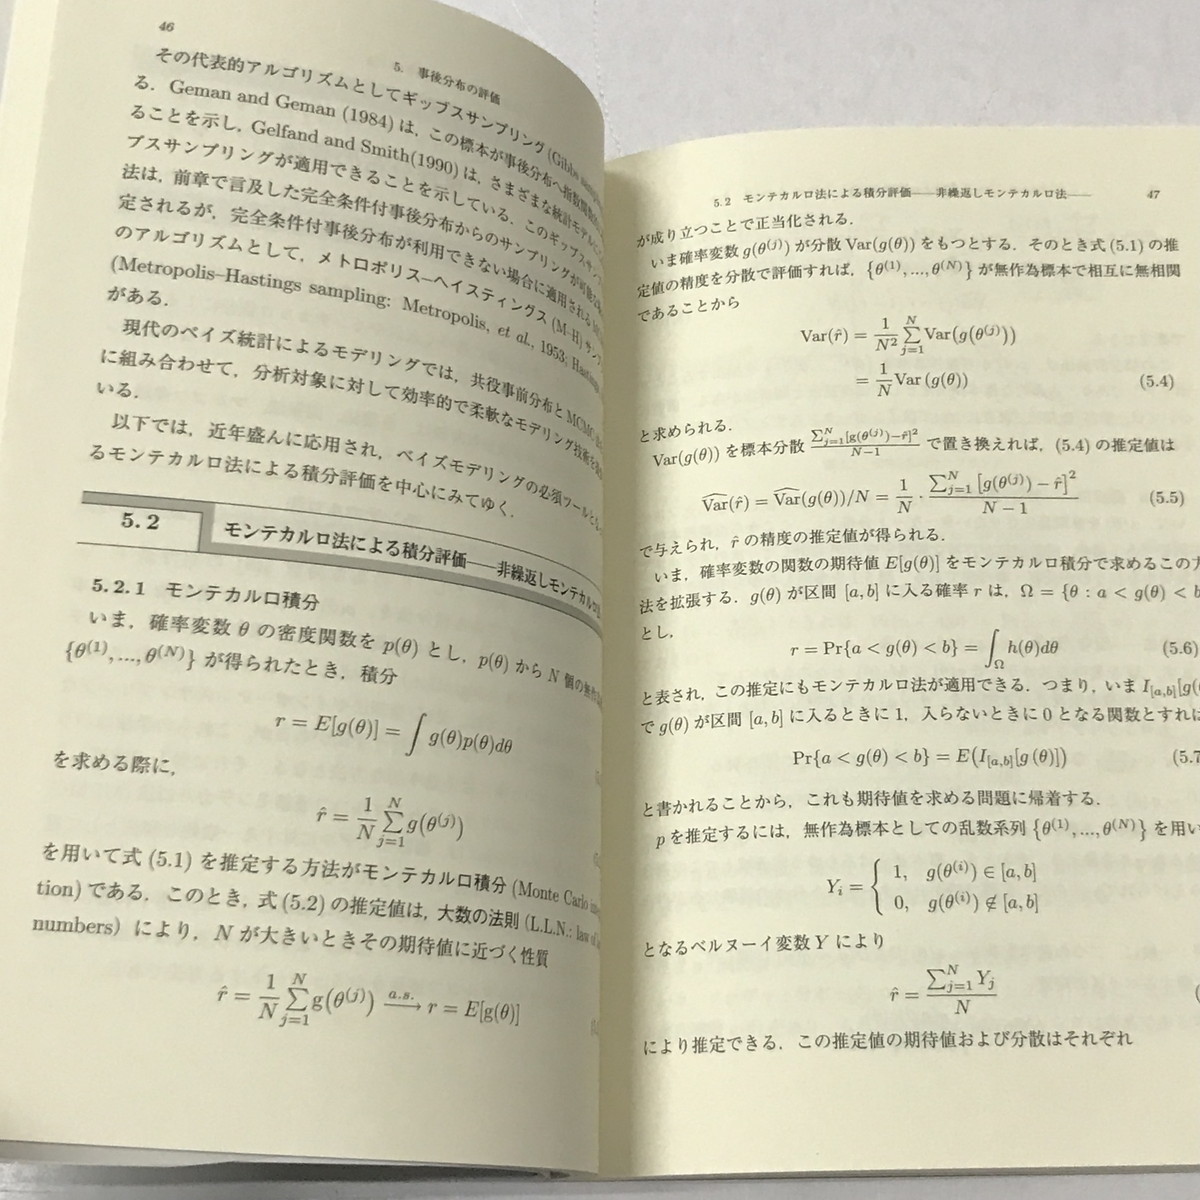 46
5. 事後分布の評価
その代表的アルゴリズムとしてギップスサンプリング (Gibbs
る．Geman and Geman (1984) は，この標本が事後分布へ指数関数的
ることを示し，Gelfand and Smith(1990) は，さまざまな統計モデル
ブスサンプリングが適用できることを示している．このギップスサンプ
法は，前章で言及した完全条件付事後分布からのサンプリングが可能
定されるが，完全条件付事後分布が利用できない場合に適用される
のアルゴリズムとして，メトロポリス–ヘイスティングス (M–H) サンプ
(Metropolis–Hastings sampling: Metropolis, et al., 1953; Hastings
がある．
現代のベイズ統計によるモデリングでは，共役事前分布と MCMC
に組み合わせて，分析対象に対して効率的で柔軟なモデリング技術を
いる．
以下では，近年盛んに応用され，ベイズモデリングの必須ツールとな
るモンテカルロ法による積分評価を中心にみてゆく．
5.2 モンテカルロ法による積分評価――非繰返しモンテカルロ
5.2.1 モンテカルロ積分
いま，確率変数 θ の密度関数を p(θ) とし，p(θ) から N 個の無作
{θ^(1), ..., θ^(N)} が得られたとき，積分
r = E[g(θ)] = ∫ g(θ)p(θ)dθ
を求める際に，
r̂ = 1/N Σ_{j=1}^{N} g(θ^(j))
を用いて式 (5.1) を推定する方法がモンテカルロ積分 (Monte Carlo
tion) である．このとき，式 (5.2) の推定値は，大数の法則 (L.L.N.: law of
numbers) により，N が大きいときその期待値に近づく性質
r̂ = 1/N Σ_{j=1}^{N} g(θ^(j)) —a.s.→ r = E[g(θ)]
5.2 モンテカルロ法による積分評価――非繰返しモンテカルロ法―― 47
が成り立つことで正当化される．
いま確率変数 g(θ^(j)) が分散 Var(g(θ)) をもつとする．そのとき式 (5.1) の推
定値の精度を分散で評価すれば，{θ^(1), ..., θ^(N)} が無作為標本で相互に無相関
であることから
Var(r̂) = 1/N² Σ_{j=1}^{N} Var(g(θ^(j)))
= 1/N Var (g(θ)) (5.4)
と求められる．
Var(g(θ)) を標本分散 Σ_{j=1}^{N}[g(θ^(j))−r̂]²/(N−1) で置き換えれば，(5.4) の推定値は
V̂ar(r̂) = V̂ar(g(θ))/N = 1/N · Σ_{j=1}^{N} [g(θ^(j)) − r̂]²/(N − 1) (5.5)
で与えられ，r̂ の精度の推定値が得られる．
いま，確率変数の関数の期待値 E[g(θ)] をモンテカルロ積分で求めるこの方
法を拡張する．g(θ) が区間 [a, b] に入る確率 r は，Ω = {θ : a < g(θ) < b
とし，
r = Pr{a < g(θ) < b} = ∫_Ω h(θ)dθ (5.6)
と表され，この推定にもモンテカルロ法が適用できる．つまり，いま I_[a,b][g(
で g(θ) が区間 [a, b] に入るときに 1，入らないときに 0 となる関数とすれば
Pr{a < g(θ) < b} = E(I_[a,b][g (θ)]) (5.7
と書かれることから，これも期待値を求める問題に帰着する．
p を推定するには，無作為標本としての乱数系列 {θ^(1), ..., θ^(N)} を用い
Y_i = { 1, g(θ^(i)) ∈ [a, b]
0, g(θ^(i)) ∉ [a, b]
となるベルヌーイ変数 Y により
r̂ = Σ_{j=1}^{N} Y_j / N (
により推定できる．この推定値の期待値および分散はそれぞれ